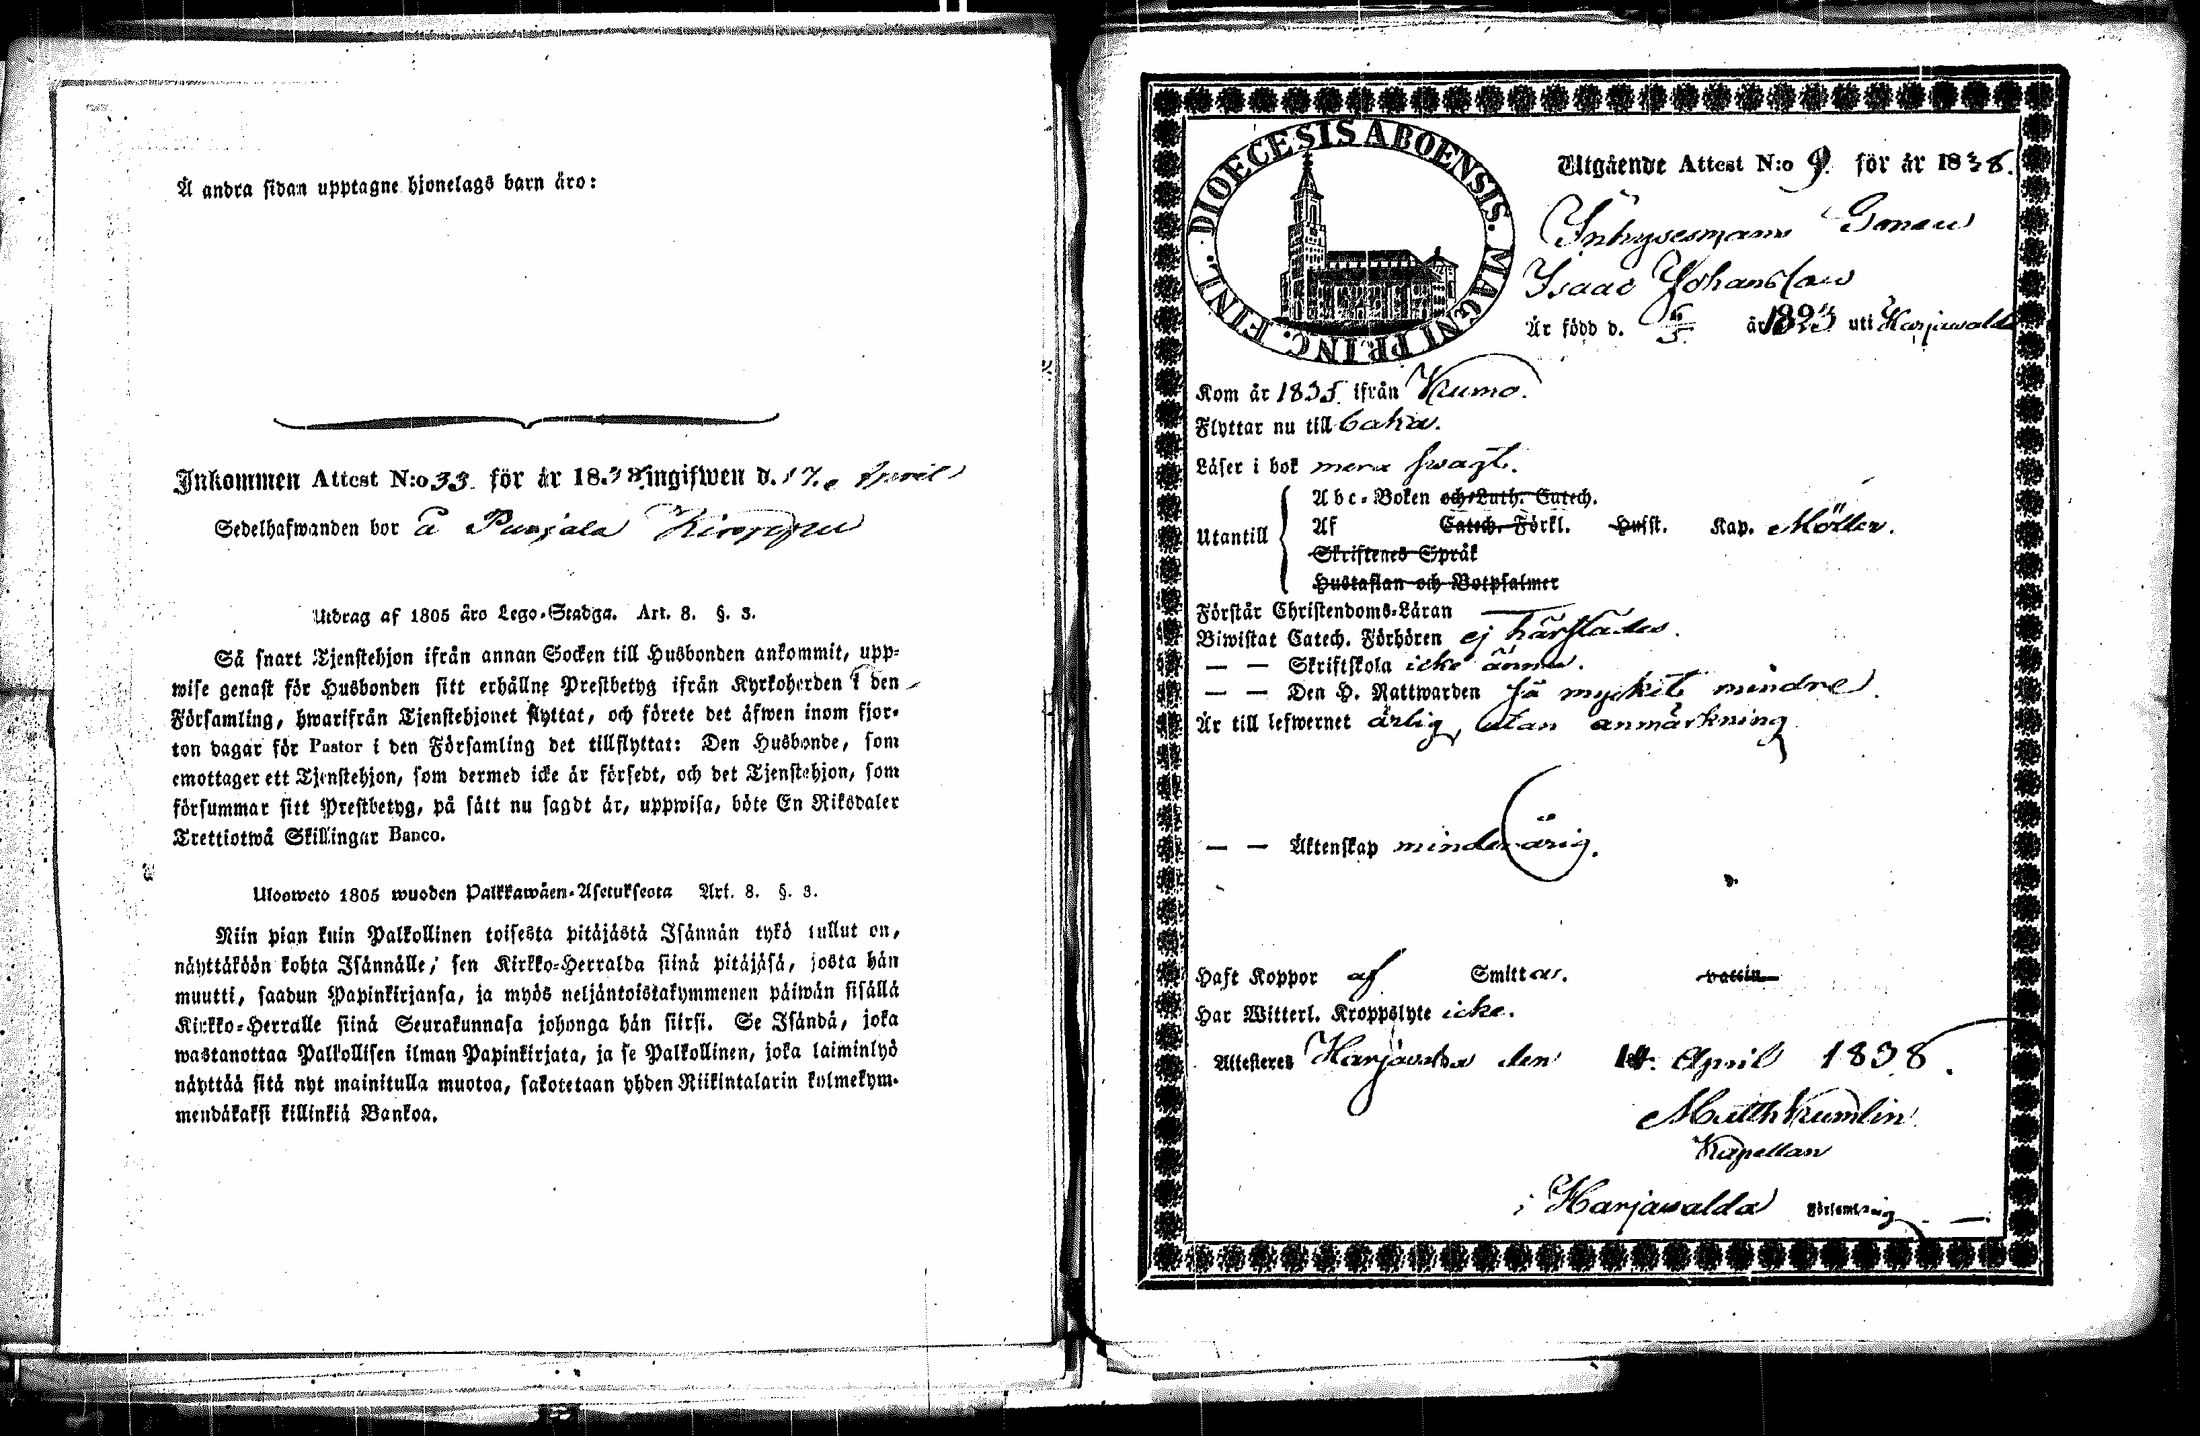 Å andra sidan upptagne hjonelags barn äro:
Inkommen Attest N:o 33. för år 1838 ingifwen d. 17. April
Sedelhafwanden bor å Punjala
Utdrag af 1805 års Lego-Stadga. Art. 8. §. 3.
Så snart Tjenstehjon ifrån annan Socken till Husbonden ankommit, upp-
wise genast för Husbonden sitt erhållne Prestbetyg ifrån Kyrkoherden i den
Församling, hwarifrån Tjenstehjonet flyttat, och förete det äfwen inom fjor-
ton dagar för Pastor i den Församling det tillflyttat: Den Husbonde, som
emottager ett Tjenstehjon, som dermed icke är försedt, och det Tjenstehjon, som
försummar sitt Prestbetyg, på sätt nu sagdt är, uppwisa, böte En Riksdaler
Trettiotwå Skillingar Banco.
Ulosweto 1805 wuoden Palkkawäen-Asetuksesta Art. 8. §. 3.
Niin pian kuin Palkollinen toisesta pitäjästä Isännän tykö tullut on,
näyttäköön kohta Isännälle, sen Kirkko-Herralda siinä pitäjäsä, josta hän
muutti, saadun Papinkirjansa, ja myös neljäntoistakymmenen päiwän sisällä
Kirkko-Herralle siinä Seurakunnasa johonga hän siirsi. Se Isändä, joka
wastanottaa Palkollisen ilman Papinkirjata, ja se Palkollinen, joka laiminlyö
näyttää sitä nyt mainitulla muotoa, sakotetaan yhden Riikintalarin kolmekym-
mendäkaksi killinkiä Bankoa.
DIOECESIS ABOENSIS. MAGNI PRINC. FINL.
Utgående Attest N:o 9. för år 1838.
Inhysesmans Sonen
Isaac Johansson
Är född d. 6/5 år 1823 uti Harjawalda
Kom år 1835. ifrån Kumo.
Flyttar nu till baka.
Läser i bok mera swagt.
Utantill
Abc-Boken och Luth. Catech.
Af Catech. Förkl. Husst. Kap. Möller.
Skriftenes Språk
Hustaflan och Botpsalmer
Förstår Christendoms-Läran —
Biwistat Catech. Förhören ej härstädes.
— — Skriftskola icke ännu.
— — Den H. Nattwarden så mycket mindre.
Är till lefwernet ärlig, utan anmärkning
— — Äktenskap minderårig.
Haft Koppor af Smittar. vaccin
Har Witterl. Kroppslyte icke.
Attesteres Harjawalda den 14. April 1838.
Matth Kumlin
Kapellan
i Harjawalda Församling —